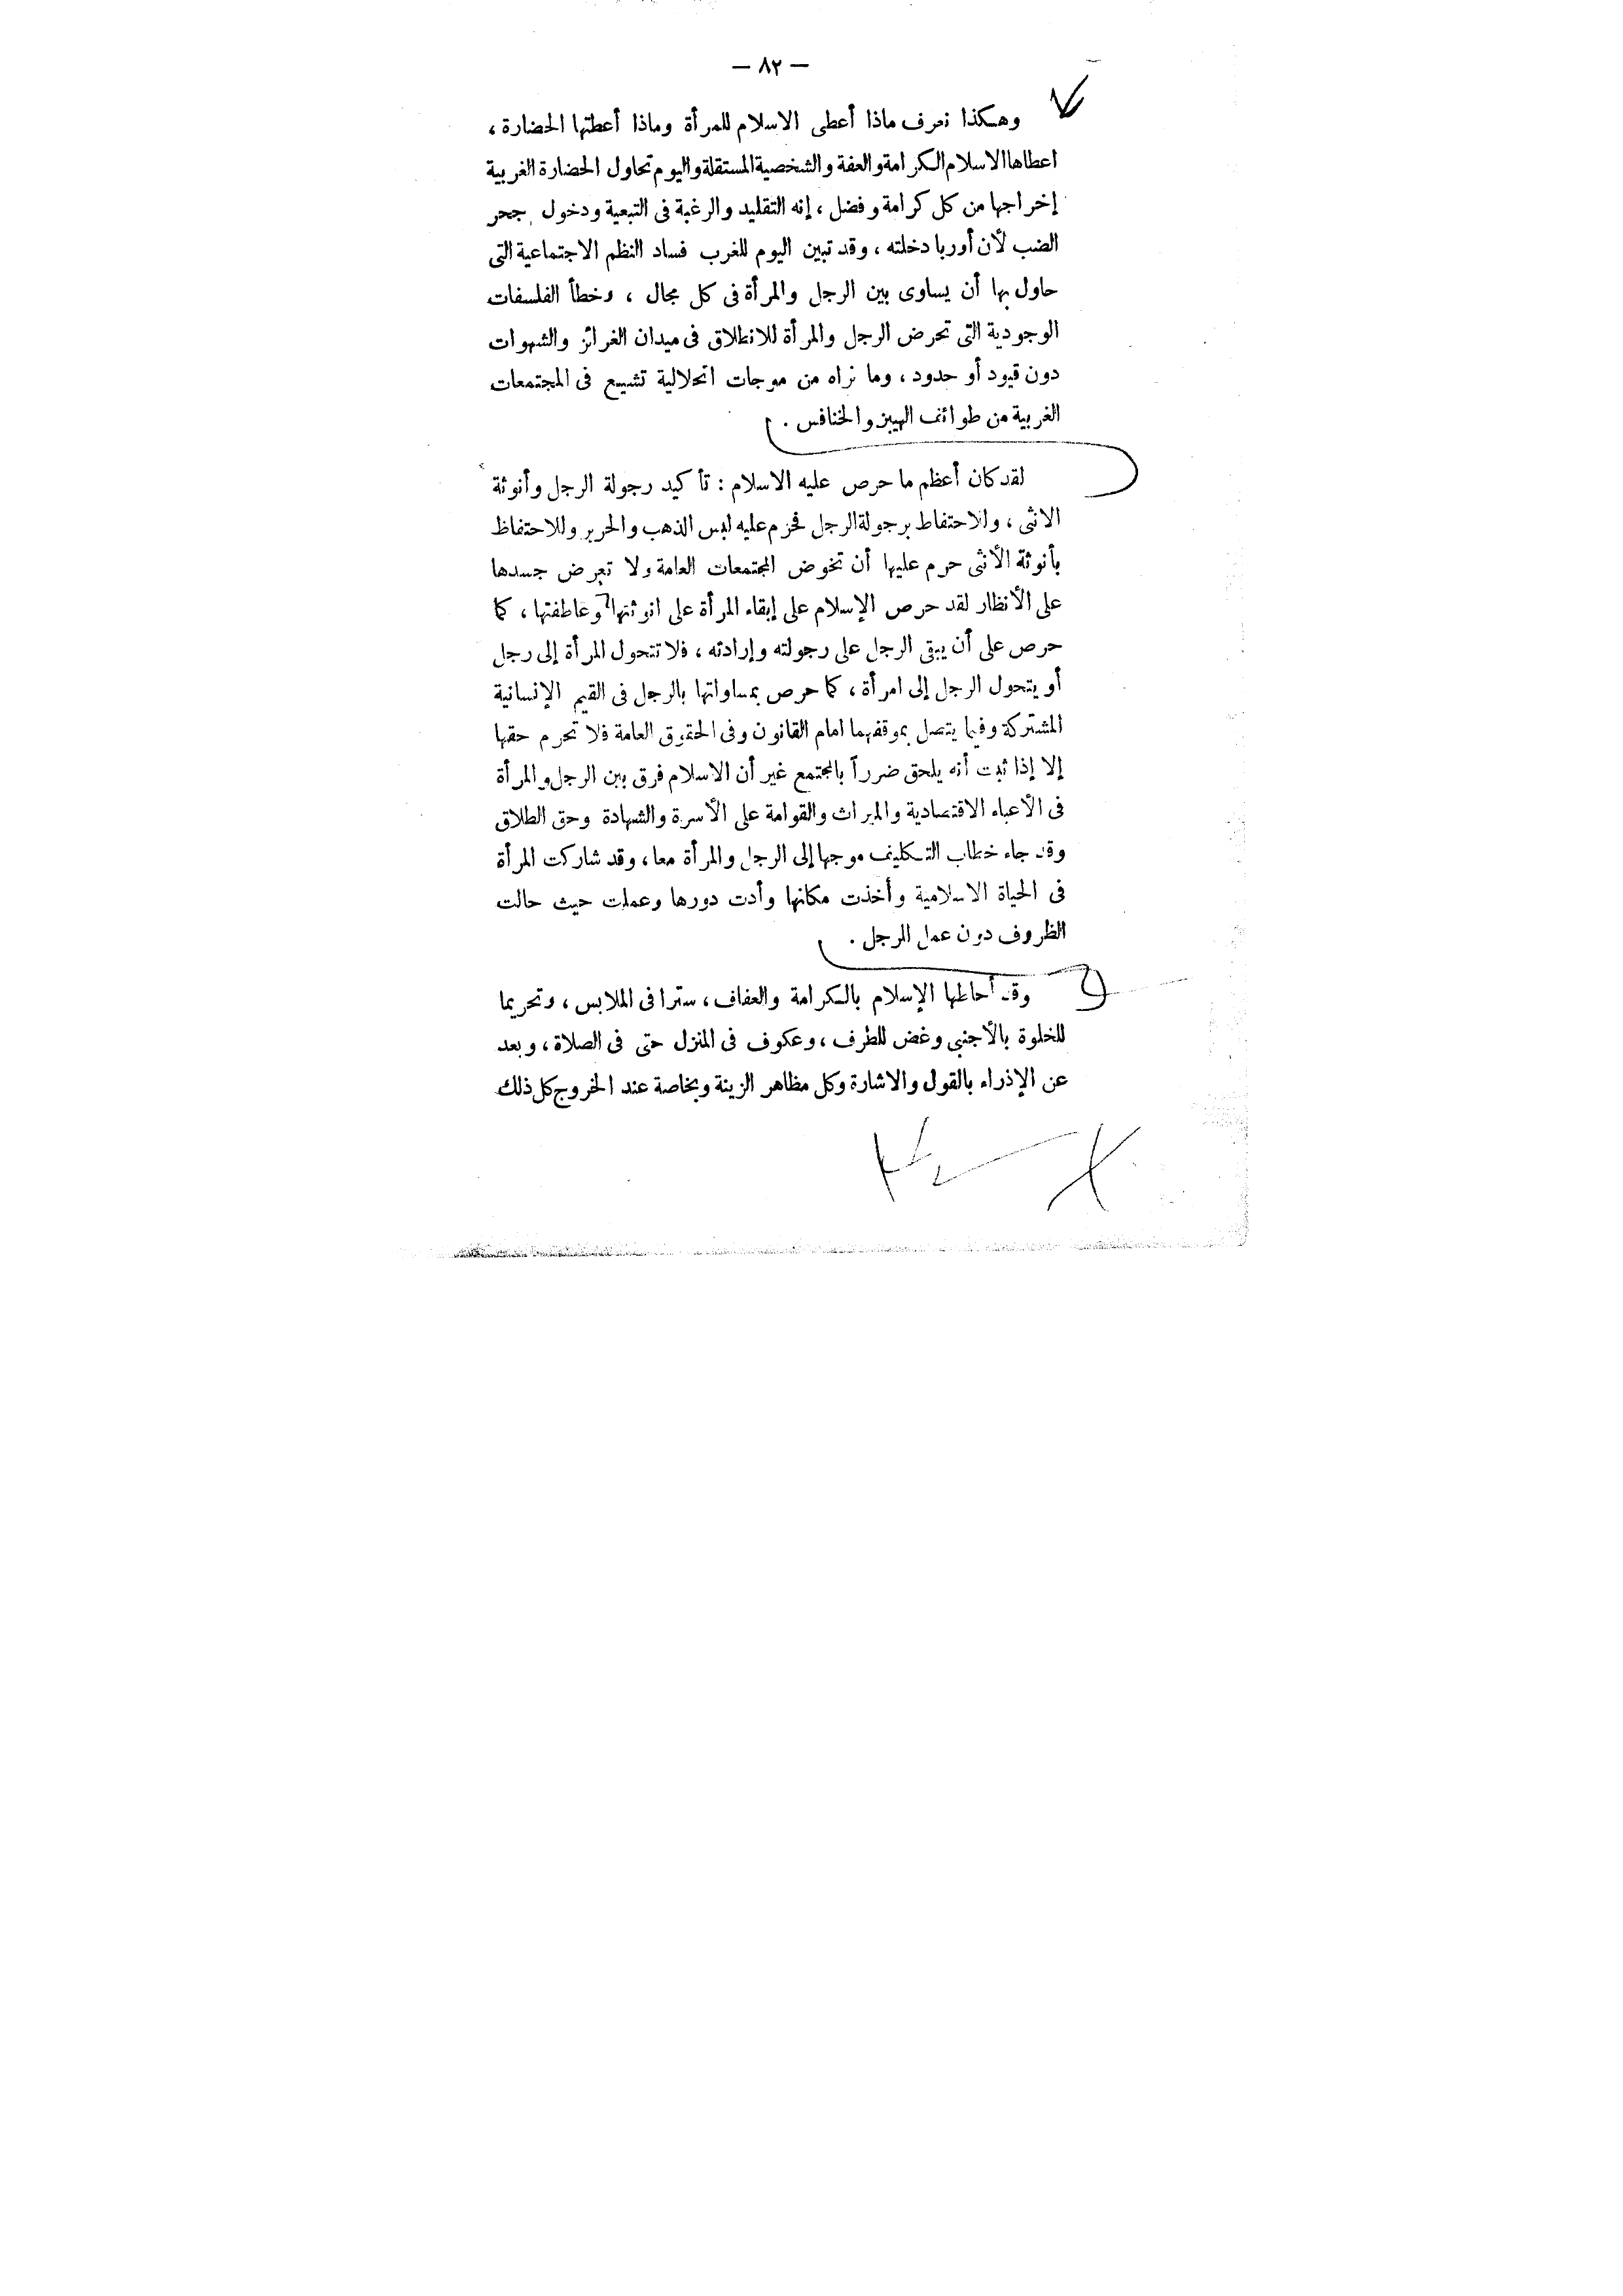 — ٨٢ —
وهكذا نعرف ماذا أعطى الاسلام للمرأة وماذا أعطتها الحضارة ،
اعطاها الاسلام الكرامة والعفة والشخصية المستقلة واليوم تحاول الحضارة الغربية
إخراجها من كل كرامة وفضل ، إنه التقليد والرغبة فى التبعية ودخول جحر
الضب لأن أوربا دخلته ، وقد تبين اليوم للغرب فساد النظم الاجتماعية التى
حاول بها أن يساوى بين الرجل والمرأة فى كل مجال ، وخطأ الفلسفات
الوجودية التى تحرض الرجل والمرأة للانطلاق فى ميدان الغرائز والشهوات
دون قيود أو حدود ، وما نراه من موجات انحلالية تشيع فى المجتمعات
الغربية من طوائف الهيبز والخنافس .
لقد كان أعظم ما حرص عليه الاسلام : تأكيد رجولة الرجل وأنوثة
الانثى ، وللاحتفاط برجولة الرجل فحرم عليه لبس الذهب والحرير وللاحتفاظ
بأنوثة الأنثى حرم عليها أن تخوض المجتمعات العامة ولا تعرض جسدها
على الأنظار لقد حرص الإسلام على إبقاء المرأة على انوثتها وعاطفتها ، كما
حرص على أن يبقى الرجل على رجولته وإرادته ، فلا تتحول المرأة إلى رجل
أو يتحول الرجل إلى امرأة ، كما حرص بمساواتها بالرجل فى القيم الإنسانية
المشتركة وفيما يتصل بموقفهما امام القانون وفى الحقوق العامة فلا تحرم حقها
إلا إذا ثبت أنه يلحق ضرراً بالمجتمع غير أن الاسلام فرق بين الرجل والمرأة
فى الأعباء الاقتصادية والميراث والقوامة على الأسرة والشهادة وحق الطلاق
وقد جاء خطاب التكليف موجها إلى الرجل والمرأة معا ، وقد شاركت المرأة
فى الحياة الاسلامية وأخذت مكانها وأدت دورها وعملت حيث حالت
الظروف دون عمل الرجل .
وقد أحاطها الإسلام بالكرامة والعفاف ، سترا فى الملابس ، وتحريما
للخلوة بالأجنبى وغض للطرف ، وعكوف فى المنزل حتى فى الصلاة ، وبعد
عن الإذراء بالقول والاشارة وكل مظاهر الزينة وبخاصة عند الخروج كل ذلك